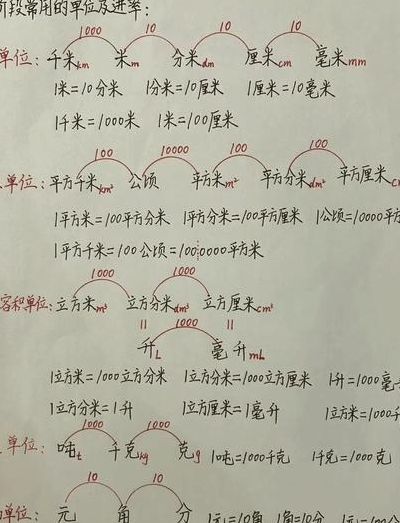 阶段常用的单位及进率:
1000 10 10 10
单位: 千米km 米m 分米dm 厘米cm 毫米mm
1米=10分米 1分米=10厘米 1厘米=10毫米
1千米=1000米 1米=100厘米
100 10000 100 100
单位: 平方千米km² 公顷 平方米m² 平方分米dm² 平方厘米c
1平方米=100平方分米 1平方分米=100平方厘米 1公顷=10000平
1平方千米=100公顷=1000000平方米
1000 1000
容积单位: 立方米m³ 立方分米dm³ 立方厘米cm³
= 1000 =
升L 毫升mL
1立方米=1000立方分米 1立方分米=1000立方厘米 1升=1000毫
1立方分米=1升 1立方厘米=1毫升 1立方米=1000
1000 1000
单位: 吨t 千克kg 克g 1吨=1000千克 1千克=1000克
10 10
单位: 元 角 分 1元=10角 1角=10分